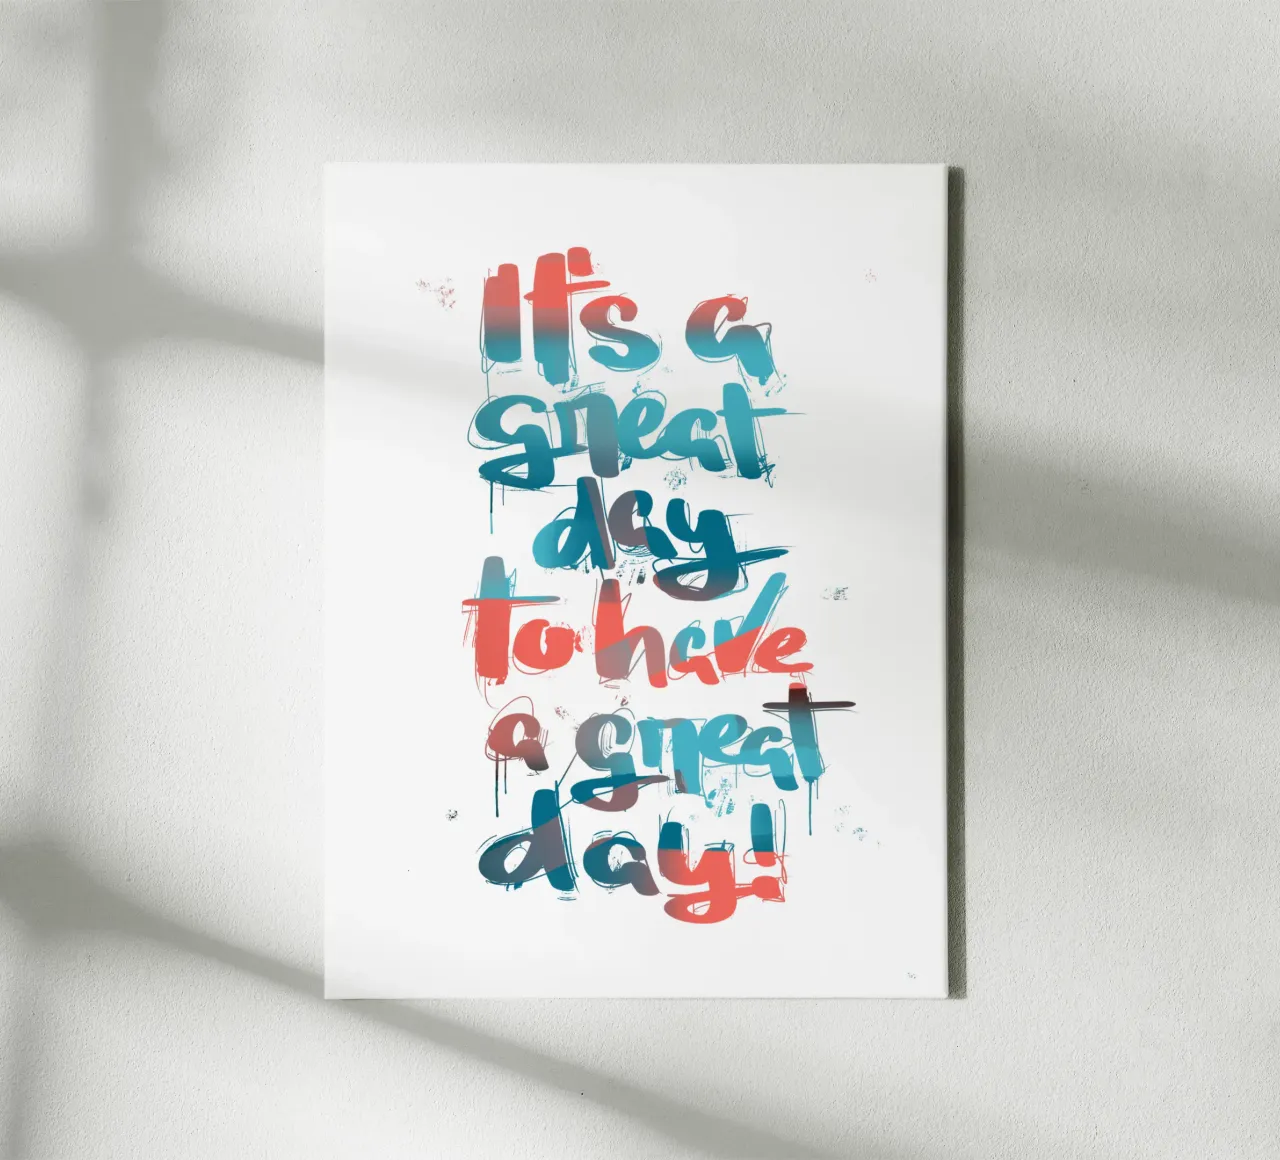 It's a
great
day
to have
a great
day!